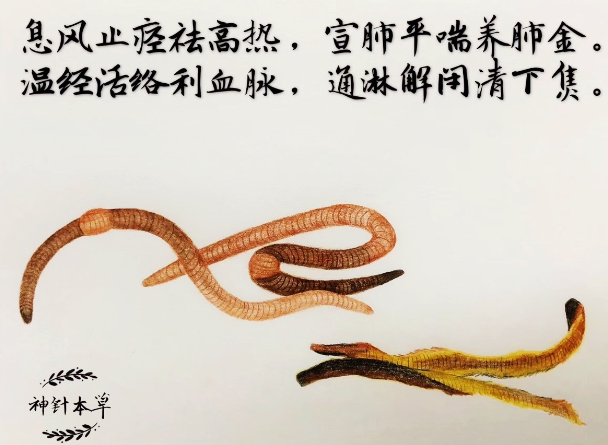 息风止痉祛高热，宣肺平喘养肺金。
温经活络利血脉，通淋解闭清下焦。
神针本草